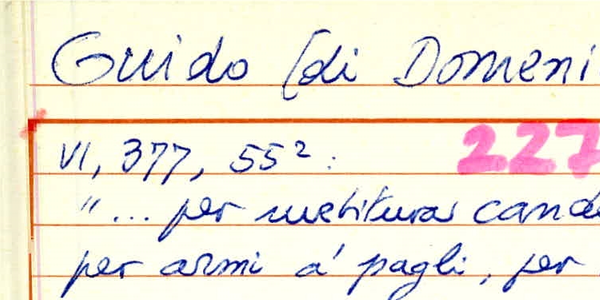 Guido [di Domeni
VI, 377, 55²:
227
"... per mebitura cande
per armi a' pagli, per